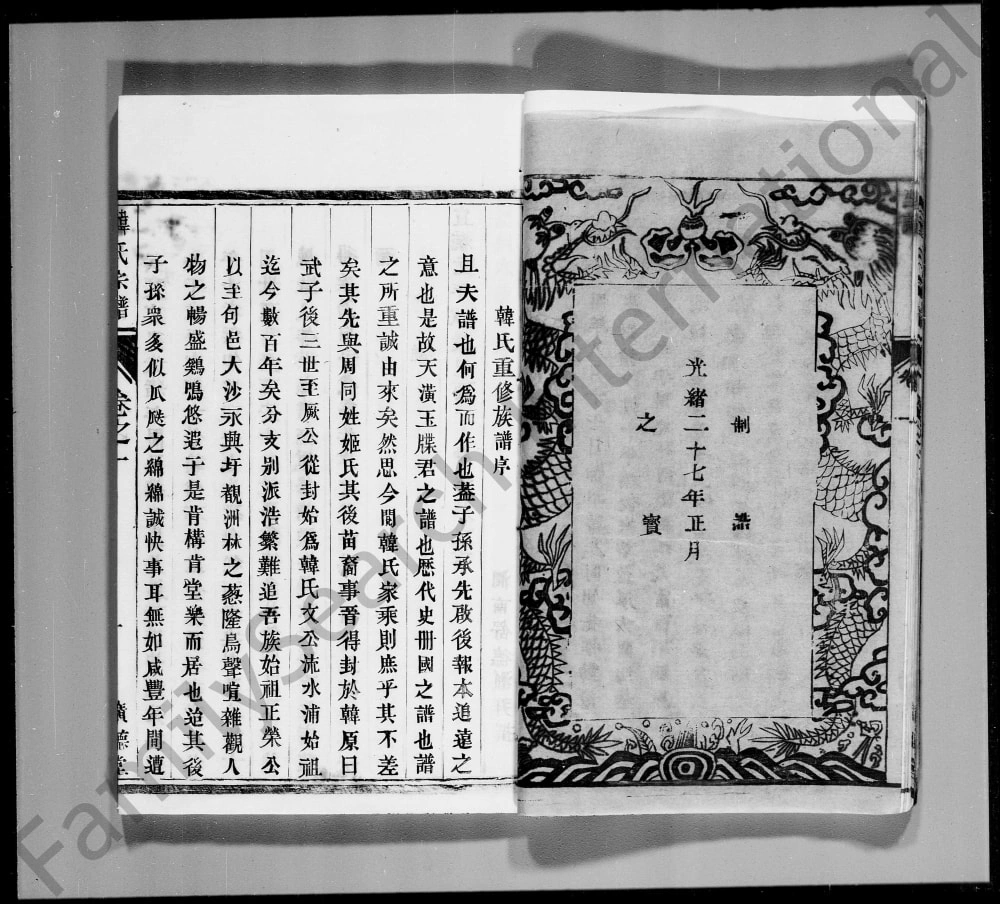 光緒二十七年正月
制誥
之寶
韓氏重修族譜序
且夫譜也何為而作也蓋子孫承先啟後報本追遠之
意也是故天潢玉牒君之譜也歷代史冊國之譜也譜
之所重誠由來矣然思今閱韓氏家乘則庶乎其不差
矣其先與周同姓姬氏其後苗裔事晉得封於韓原曰
武子後三世至厥公從封始為韓氏文公流水浦始祖
迄今數百年矣分支別派浩繁難追吾族始祖正榮公
以至句邑大沙永興圩觀洲林之蔥隆鳥聲喧雜觀人
物之暢盛鷄鴨悠遊于是肯構肯堂樂而居也迨其後
子孫衆多似瓜瓞之綿綿誠快事耳無如咸豐年間遭
韓氏宗譜
卷之一
一
廣德堂
FamilySearch International